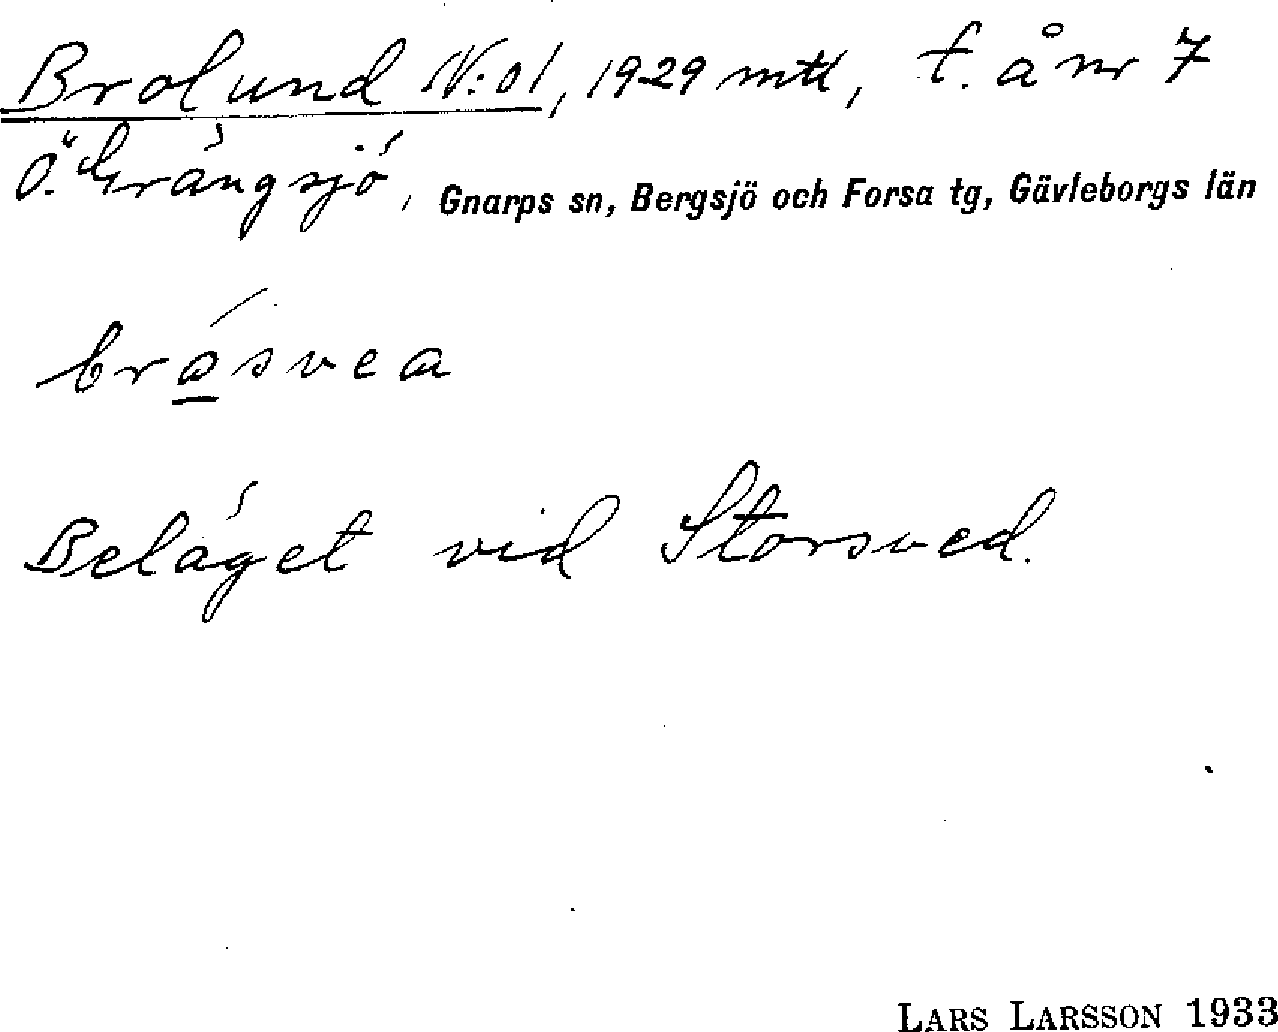 Brolund N:o1, 1929 mtl, t. å nr 7
Ö. Grängsjö, Gnarps sn, Bergsjö och Forsa tg, Gävleborgs län
brósvea
Beläget vid Storsved.
LARS LARSSON 1933